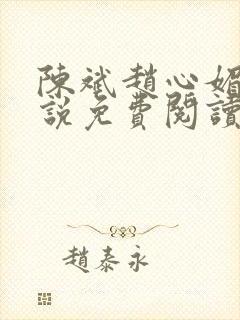 陳斌趙心媚
說免費閱讀
趙泰永